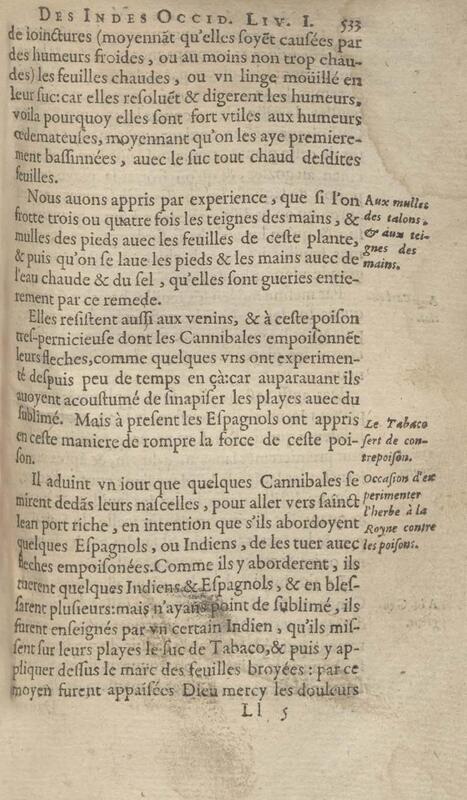 DES INDES OCCID. LIV. I. 533
de ioinctures (moyennãt qu'elles soyẽt causées par
des humeurs froides, ou au moins non trop chau-
des) les feuilles chaudes, ou vn linge moüillé en
leur suc: car elles resoluẽt & digerent les humeurs,
voila pourquoy elles sont fort vtiles aux humeurs
œdemateuses, moyennant qu'on les aye premiere-
ment bassinnées, auec le suc tout chaud desdites
feuilles.
Nous auons appris par experience, que si l'on
frotte trois ou quatre fois les teignes des mains, &
mulles des pieds auec les feuilles de ceste plante,
& puis qu'on se laue les pieds & les mains auec de
l'eau chaude & du sel, qu'elles sont gueries entie-
rement par ce remede.
Aux mulles
des talons,
& aux tei-
gnes des
mains.
Elles resistent aussi aux venins, & à ceste poison
tres-pernicieuse dont les Cannibales empoisonnẽt
leurs fleches, comme quelques vns ont experimen-
té despuis peu de temps en çà: car auparauant ils
auoyent acoustumé de sinapiser les playes auec du
sublimé. Mais à present les Espagnols ont appris
en ceste maniere de rompre la force de ceste poi-
son.
Le Tabaco
sert de con-
trepoison.
Il aduint vn iour que quelques Cannibales se
mirent dedãs leurs nascelles, pour aller vers sainct
Iean port riche, en intention que s'ils abordoyent
quelques Espagnols, ou Indiens, de les tuer auec
fleches empoisonées. Comme ils y aborderent, ils
tuerent quelques Indiens & Espagnols, & en bles-
sarent plusieurs: mais n'ayans point de sublimé, ils
furent enseignés par vn certain Indien, qu'ils mis-
sent sur leurs playes le suc de Tabaco, & puis y ap-
pliquer dessus le marc des feuilles broyées: par ce
moyen furent appaisées Dieu mercy les douleurs
Occasion d'ex
perimenter
l'herbe à la
Royne contre
les poisons.
Ll 5